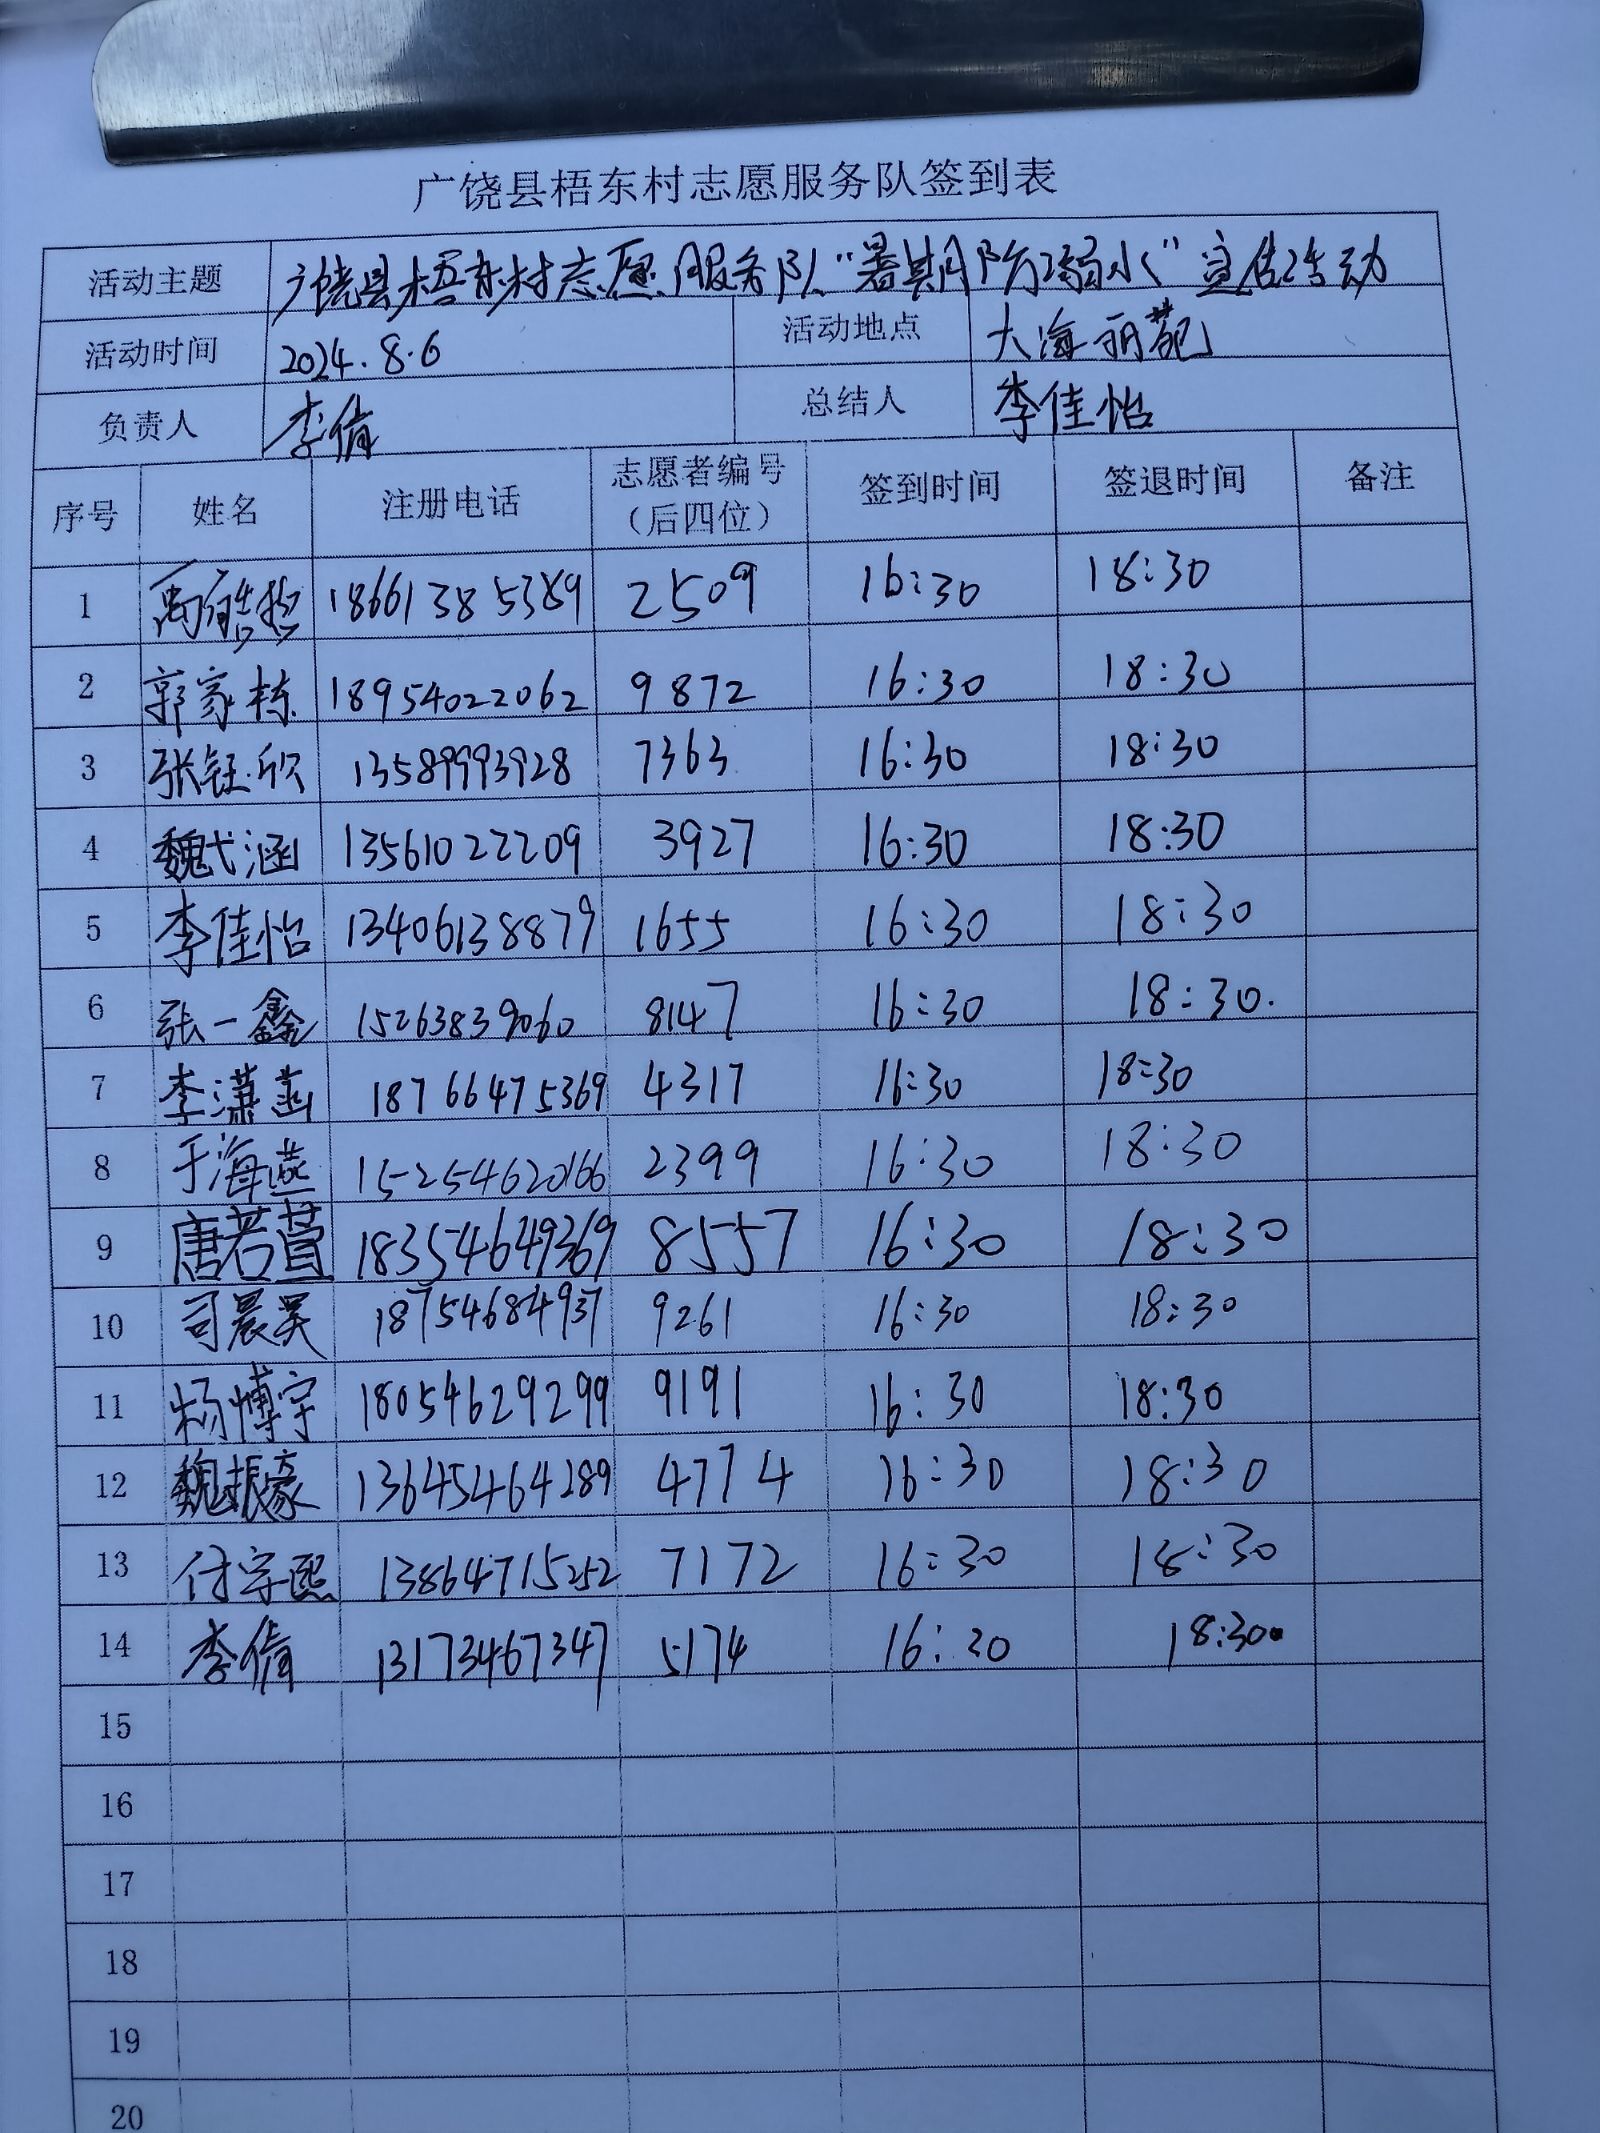 广饶县梧东村志愿服务队签到表
活动主题 广饶县梧东村志愿服务队“暑期防溺水”宣传活动
活动时间 2024.8.6 活动地点 大海丽苑
负责人 李倩 总结人 李佳怡
序号 姓名 注册电话 志愿者编号（后四位） 签到时间 签退时间 备注
1 18661385389 2509 16:30 18:30
2 郭家栋 18954022062 9872 16:30 18:30
3 张钰欣 13589993928 7363 16:30 18:30
4 魏弋涵 13561022209 3927 16:30 18:30
5 李佳怡 13406138879 1655 16:30 18:30
6 张一鑫 15263839060 8147 16:30 18:30.
7 李潇菡 18766475369 4317 16:30 18:30
8 于海燕 15254620166 2399 16:30 18:30
9 唐若萱 18354649369 8557 16:30 18:30
10 司晨昊 18754684937 9261 16:30 18:30
11 杨博宇 18054629299 9191 16:30 18:30
12 魏振豪 13645464289 4774 16:30 18:30
13 付宇熙 13864715252 7172 16:30 18:30
14 李倩 13173467347 5174 16:30 18:30
15
16
17
18
19
20